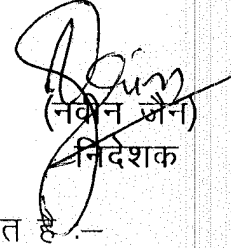 (नवीन जैन)
निदेशक
त है :–